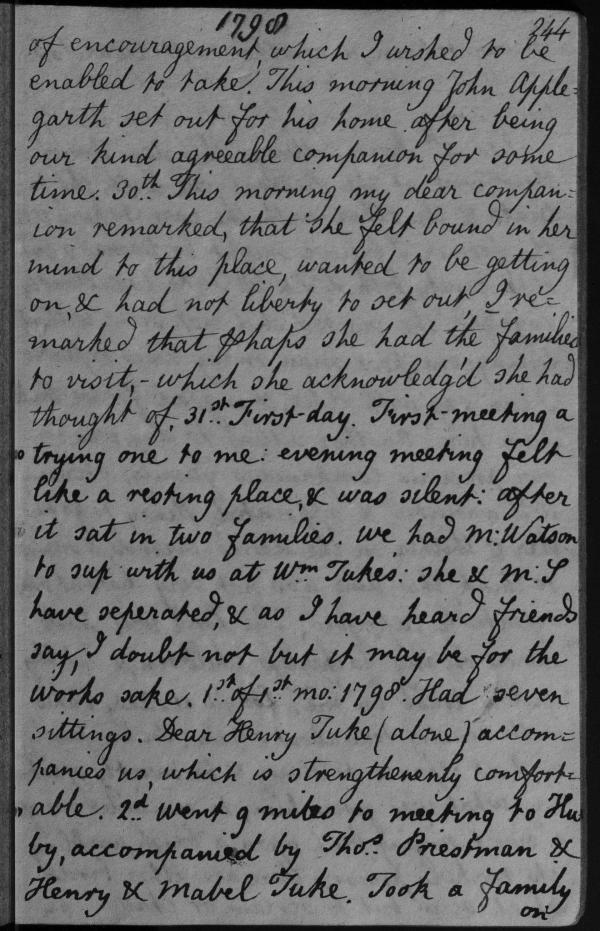 1798
244
of encouragement, which I wished to be
enabled to take. This morning John Apple=
garth set out for his home after being
our kind agreeable companion for some
time. 30th. This morning my dear compan=
ion remarked, that she felt bound in her
mind to this place, wanted to be getting
on, & had not liberty to set out, I re=
marked that phaps she had the families
to visit, - which she acknowledg'd she had
thought of. 31st. First-day. First-meeting a
trying one to me: evening meeting felt
like a resting place, & was silent: after
it sat in two families. we had M: Watson
to sup with us at Wm Tukes: she & M: S
have seperated, & as I have heard friends
say, I doubt not but it may be for the
works sake. 1st. of 1st mo: 1798. Had seven
sittings. Dear Henry Tuke (alone) accom=
panies us, which is strengthenenly comfort=
able. 2d. went 9 miles to meeting to Hu
by, accompanied by Thos. Priestman &
Henry & Mabel Tuke. Took a family
on